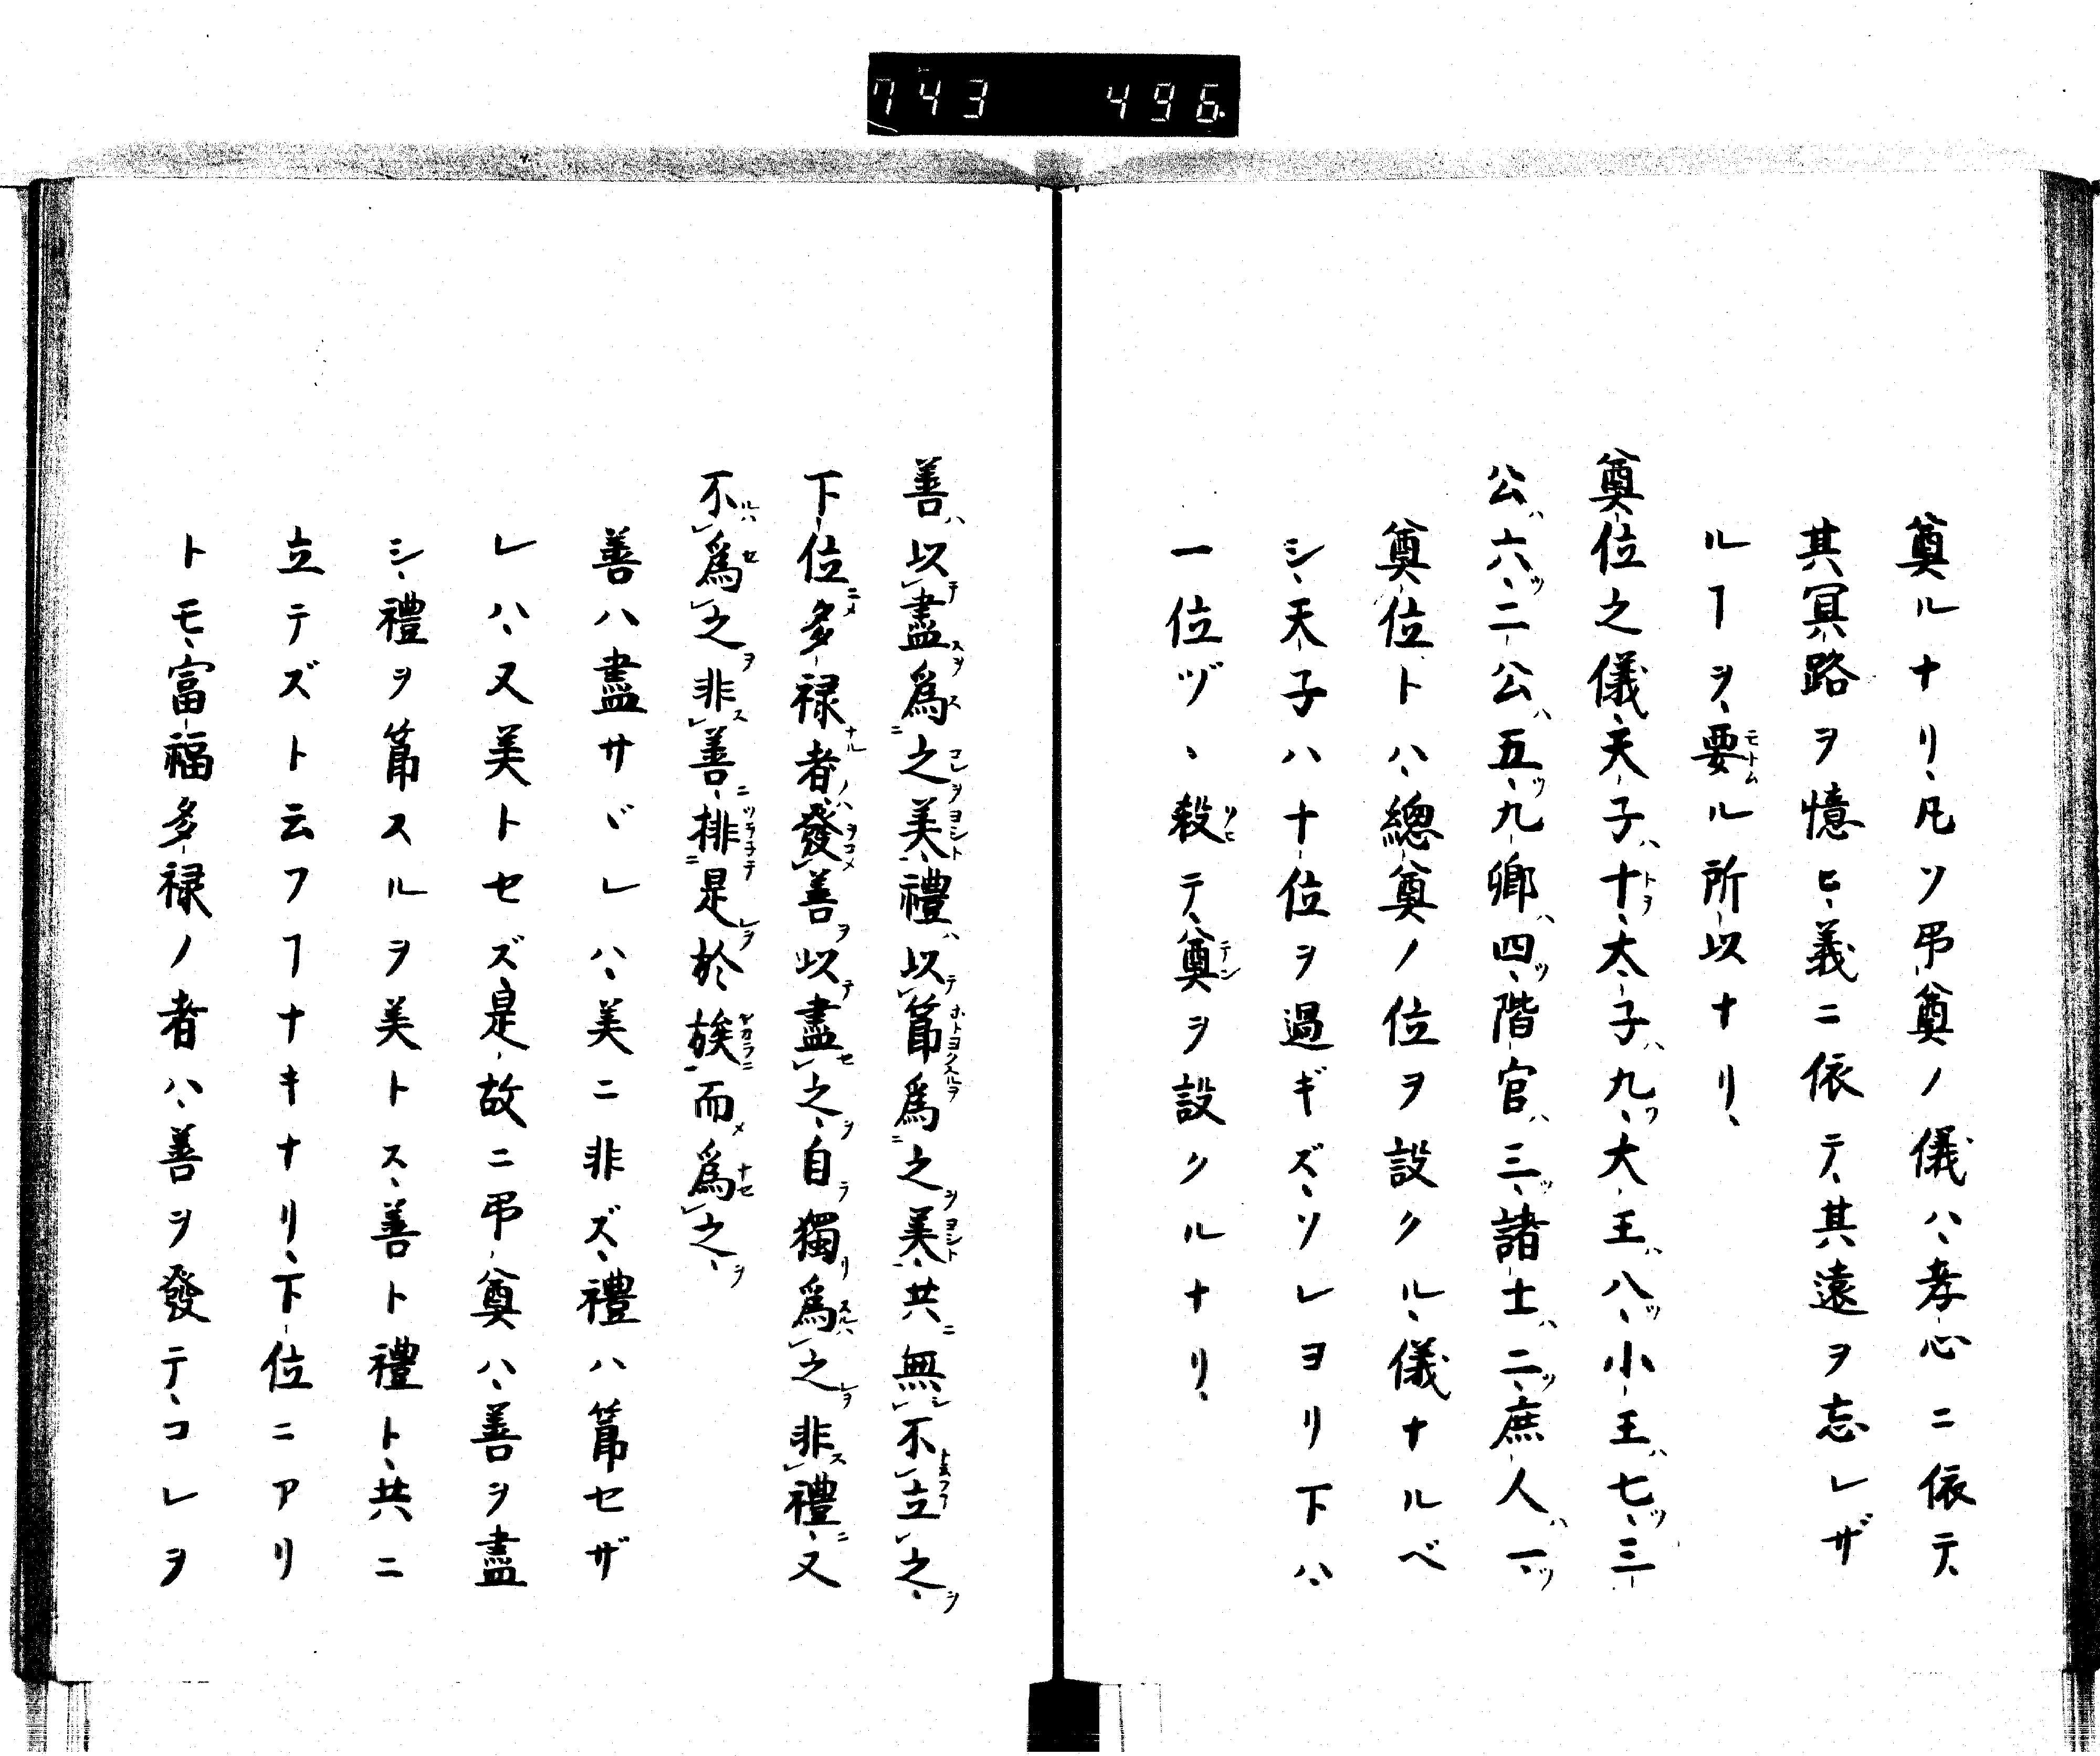 743 496
奠ルナリ、凡ソ弔奠ノ儀ハ、孝心ニ依テ、
其冥路ヲ憶ヒ、義ニ依テ、其遠ヲ忘レザ
ルヿヲ、要ル所以ナリ、
奠位之儀、天子ハ十、太子ハ九、大王ハ八、小王ハ七、三
公ハ六、二公ハ五、九卿ハ四、階官ハ三、諸士ハ二、庶人ハ一、
奠位トハ、總奠ノ位ヲ設クル、儀ナルベ
シ、天子ハ十位ヲ過ギズ、ソレヨリ下ハ、
一位ヅヽ殺テ、奠ヲ設クルナリ、
善ハ以盡爲之美、禮ハ以節爲之美、共無不立之、
下位多祿者發善以盡之、自獨爲之非禮、又
不爲之非善、排是於族而爲之、
善ハ盡サヾレハ、美ニ非ズ、禮ハ節セザ
レハ、又美トセズ、是故ニ弔奠ハ、善ヲ盡
シ、禮ヲ節スルヲ美トス、善ト禮ト、共ニ
立テズト云フヿナキナリ、下位ニアリ
トモ、富福多祿ノ者ハ、善ヲ發テ、コレヲ